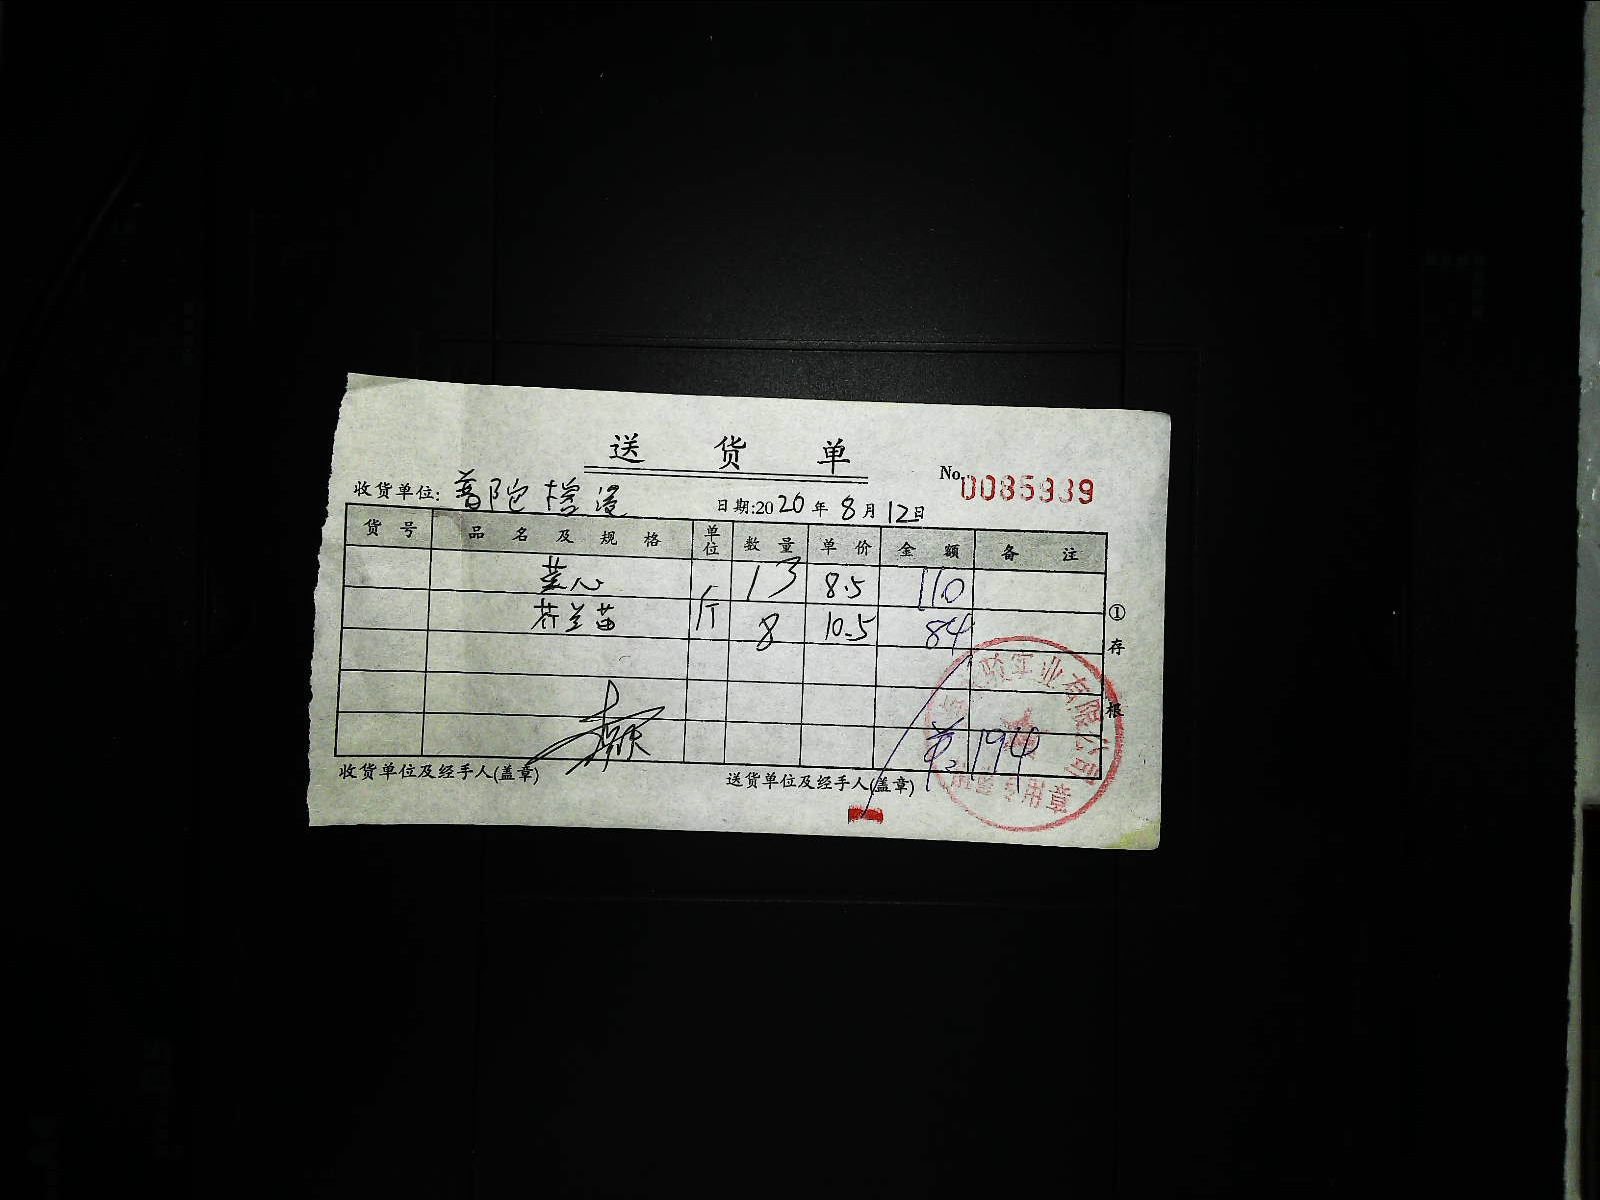 送 货 单
No. 0085939
收货单位: 普陀
日期:2020年8月12日
货 号 品 名 及 规 格 单位 数 量 单 价 金 额 备 注
菜心 斤 13 8.5 110
芥兰苗 8 10.5 84
194
收货单位及经手人(盖章) 送货单位及经手人(盖章)
① 存 根
实业有限公司
专用章